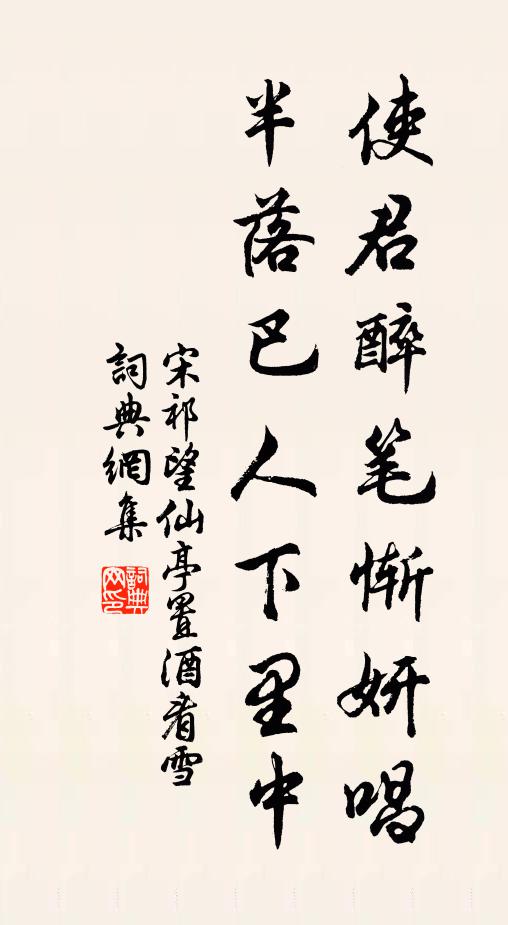 使君醉笔惭妍唱
半落巴人下里中
宋祁望仙亭置酒看雪
詞典網集
詞典网印